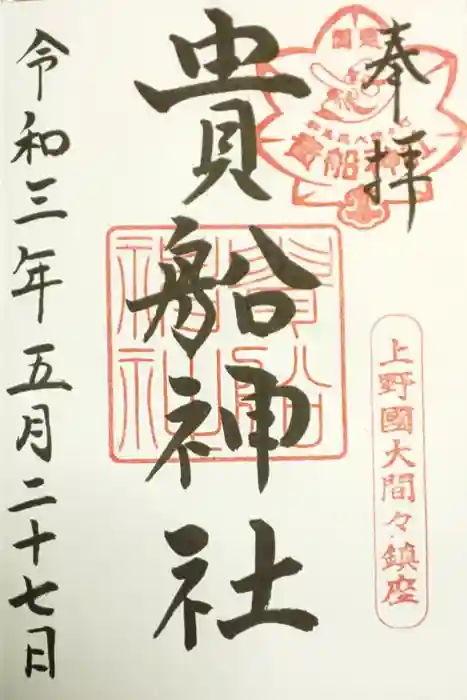 奉拝
貴船神社
上野國大間々鎮座
令和三年五月二十七日
貴船神社
貴船神社